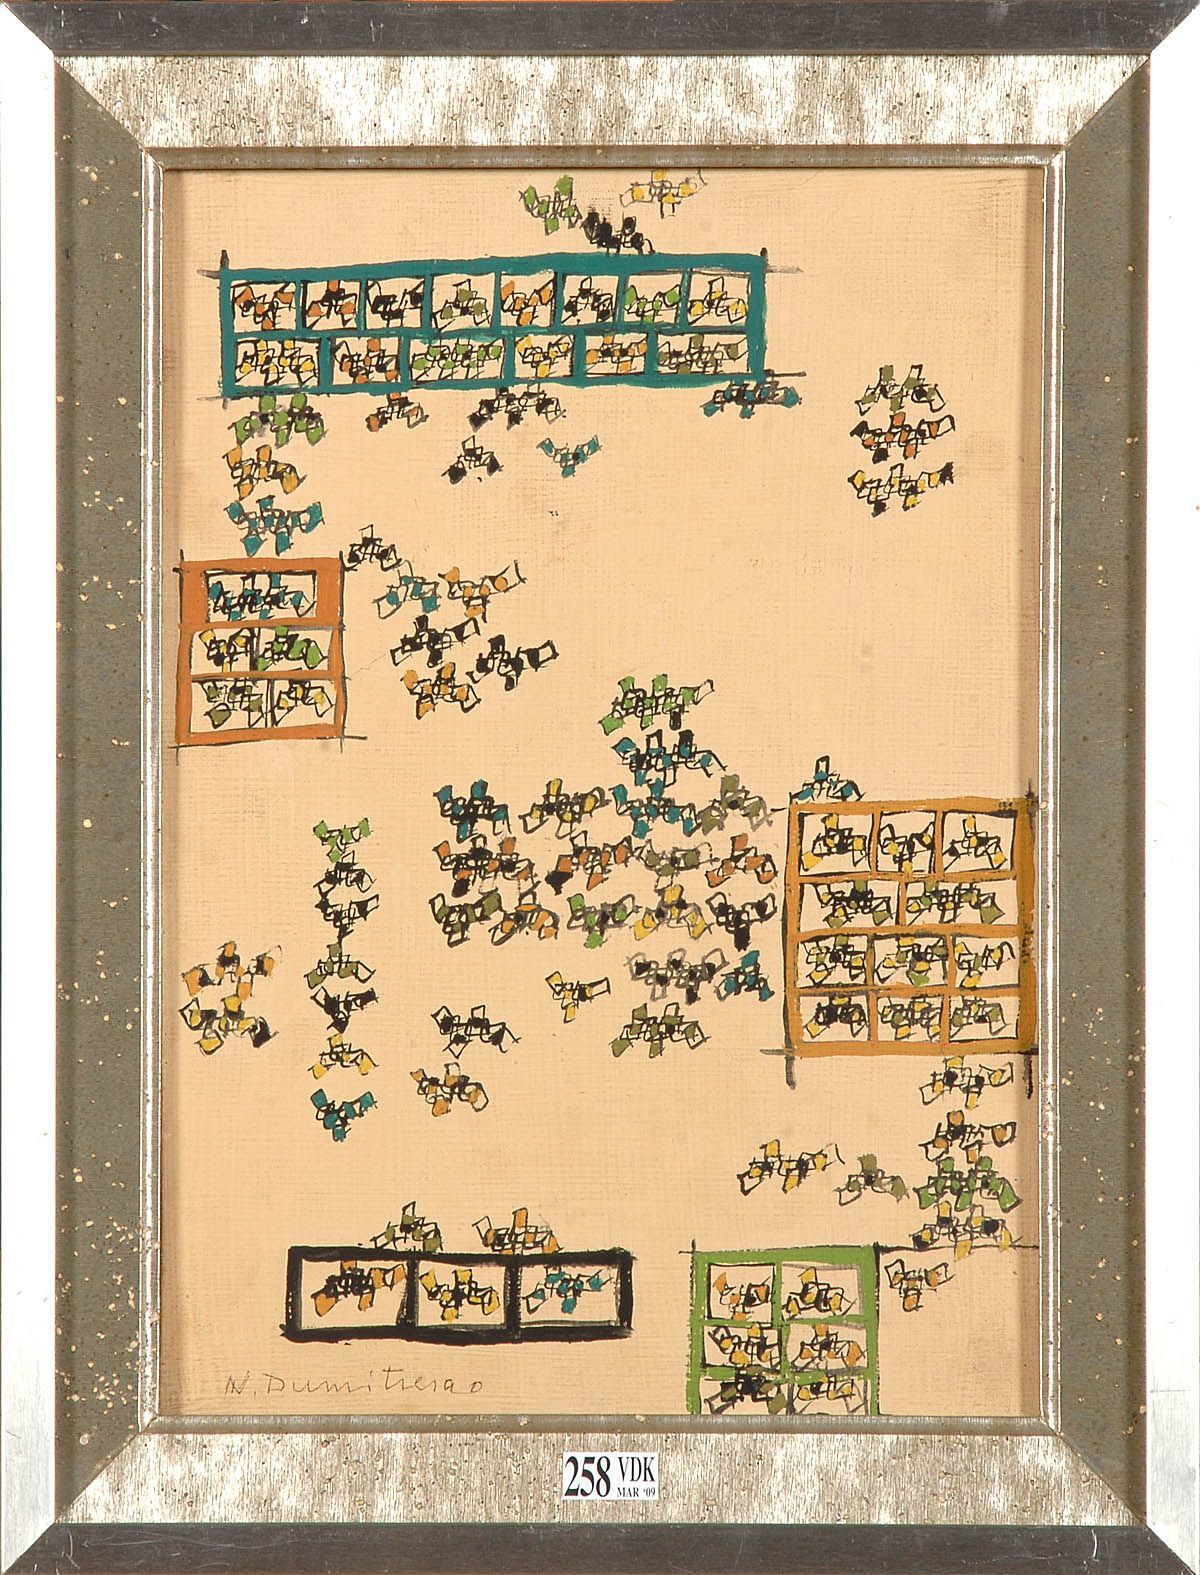 N. Dumitresco
258 VDK
MAR '09